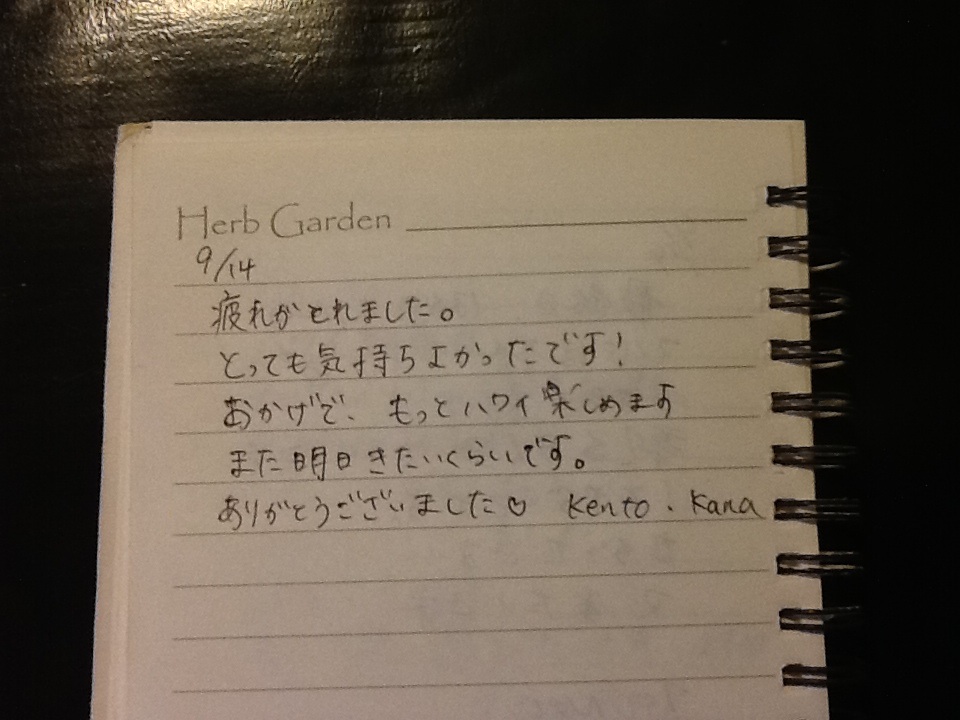 Herb Garden
9/14
疲れがとれました。
とっても気持ちよかったです!
おかげで、もっとハワイ楽しめます
また明日きたいくらいです。
ありがとうございました♡ Kento・Kana